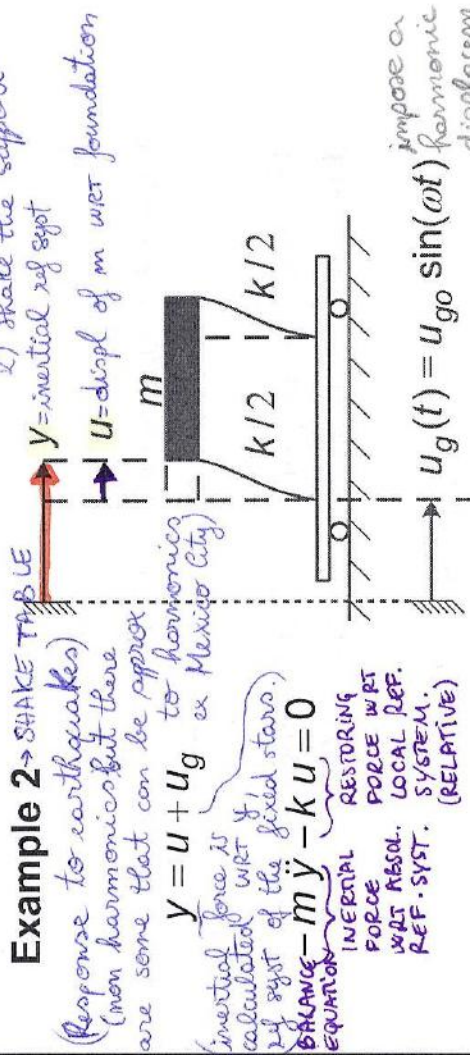 2) shake the support
Example 2 → SHAKE TABLE
(Response to earthquakes)
(non harmonics but there
are some that can be approx
to harmonics
ex Mexico City)
y = u + u_g
(inertial force is
calculated WRT y,
ref syst of the fixed stars.)
BALANCE EQUATION
− m ÿ − k u = 0
INERTIAL
FORCE
WRT ABSOL.
REF. SYST.
RESTORING
FORCE WRT
LOCAL REF.
SYSTEM.
(RELATIVE)
y = inertial ref syst
u = displ of m WRT foundation
m
k/2
k/2
u_g(t) = u_go sin(ωt)
impose a
harmonic